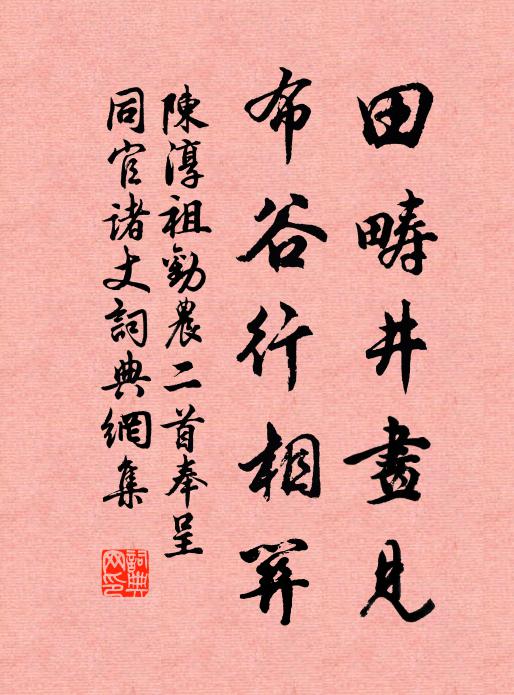 田疇井畫見
布谷行相
陳淳祖勸農二首奉呈
同官諸丈詞典網集
詞典
网印